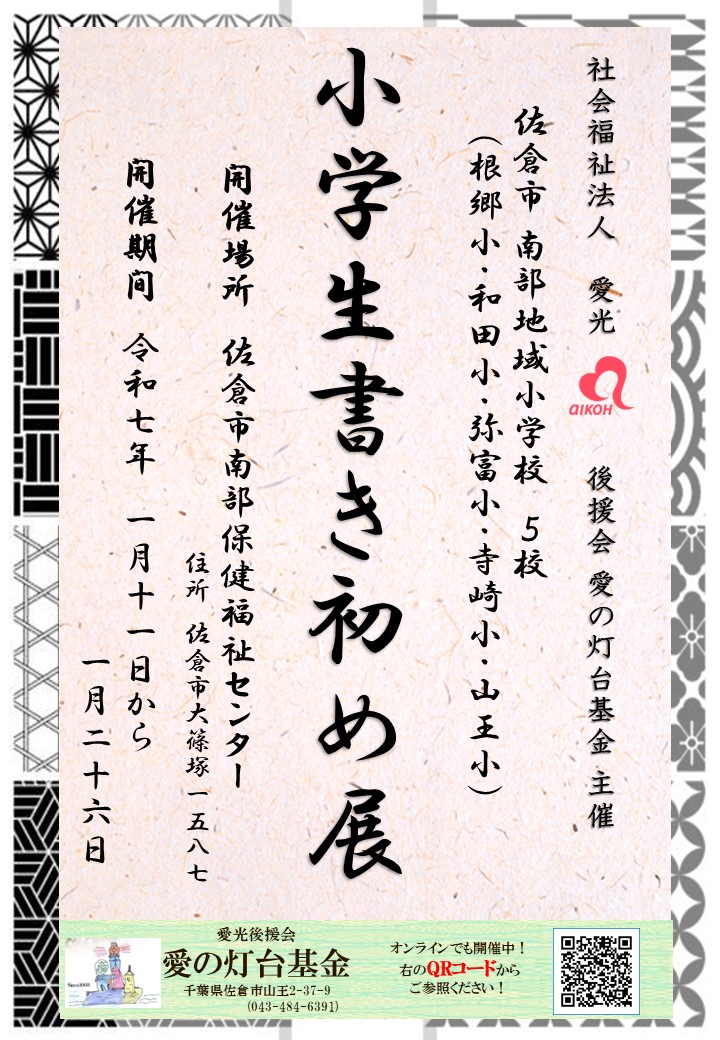 社会福祉法人 愛光 後援会 愛の灯台基金 主催
AIKOH
佐倉市 南部地域小学校 5校
(根郷小・和田小・弥富小・寺崎小・山王小)
小学生書き初め展
開催場所 佐倉市南部保健福祉センター
住所 佐倉市大篠塚一五八七
開催期间 令和七年 一月十一日から
一月二十六日
Since2003
愛光後援会
愛の灯台基金
千葉県佐倉市山王2-37-9
(043-484-6391)
オンラインでも開催中!
右のQRコードから
ご参照ください!